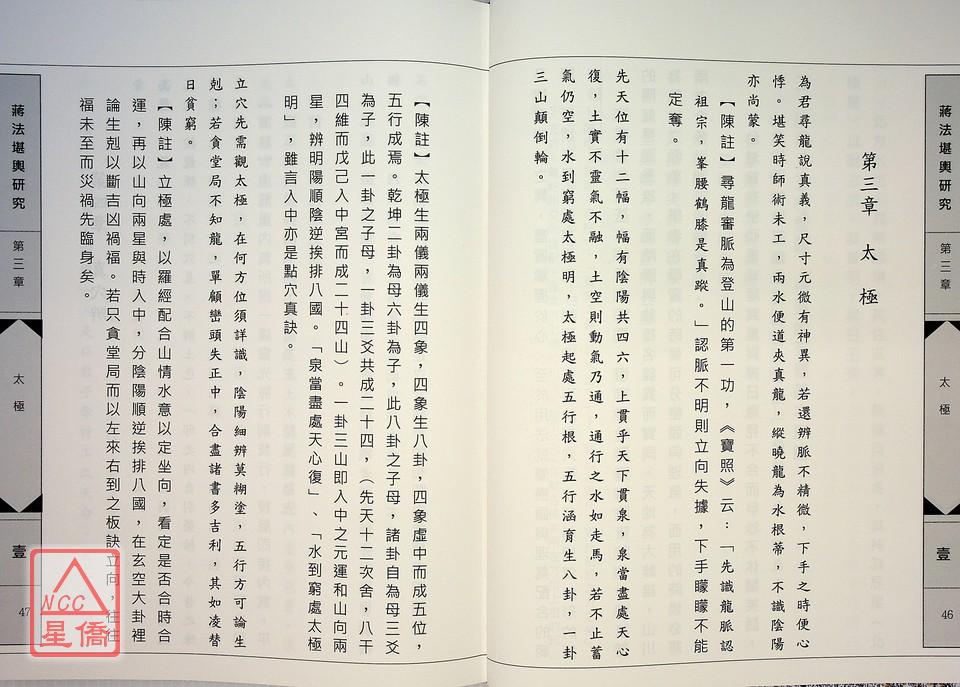 蔣法堪輿研究
第三章
太極
壹
46
第三章 太極
為君尋龍說真義，尺寸元微有神異，若還辨脈不精微，下手之時便心
悸。堪笑時師術未工，兩水便道夾真龍，縱曉龍為水根蒂，不識陰陽
亦尚蒙。
【陳註】尋龍審脈為登山的第一功，《寶照》云：「先識龍脈認
祖宗，峯腰鶴膝是真蹤。」認脈不明則立向失據，下手矇矇不能
定奪。
先天位有十二幅，幅有陰陽共四六，上貫乎天下貫泉，泉當盡處天心
復，土實不靈氣不融，土空則動氣乃通，通行之水如走馬，若不止蓄
氣仍空，水到窮處太極明，太極起處五行根，五行涵育生八卦，一卦
三山顛倒輪。
【陳註】太極生兩儀兩儀生四象，四象生八卦，四象虛中而成五位，
五行成焉。乾坤二卦為母六卦為子，此八卦之子母，諸卦自為母三爻
為子，此一卦之子母，一卦三爻共成二十四，（先天十二次舍，八干
四維而戊己入中宮而成二十四山）。一卦三山即入中之元運和山向兩
星，辨明陽順陰逆挨排八國。「泉當盡處天心復」、「水到窮處太極
明」，雖言入中亦是點穴真訣。
立穴先需觀太極，在何方位須詳識，陰陽細辨莫糊塗，五行方可論生
剋；若貪堂局不知龍，單顧巒頭失正中，合盡諸書多吉利，其如凌替
日貧窮。
【陳註】立極處，以羅經配合山情水意以定坐向，看定是否合時合
運，再以山向兩星與時入中，分陰陽順逆挨排八國，在玄空大卦裡
論生剋以斷吉凶禍福。若只貪堂局而以左來右到之板訣立向，往往
福未至而災禍先臨身矣。
蔣法堪輿研究
第三章
太極
壹
47
NCC
星僑